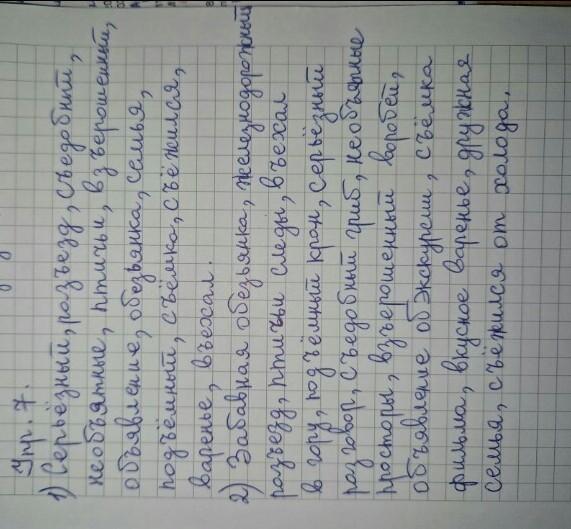 Упр. 7.
1) Серьёзный, разъезд, съедобный,
необъятные, птичьи, взъерошенный,
объявление, обезьянка, семья,
подъёмный, съёмка, съёжился,
варенье, въехал.
2) Забавная обезьянка, железнодорожный
разъезд, птичьи следы, въехал
в гору, подъёмный кран, серьёзный
разговор, съедобный гриб, необъятные
просторы, взъерошенный воробей,
объявление об экскурсии, съёмка
фильма, вкусное варенье, дружная
семья, съёжился от холода.